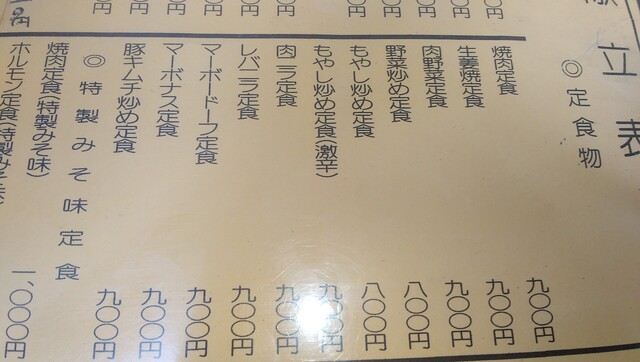 献立表
◎定食物
焼肉定食 九〇〇円
生姜焼定食 九〇〇円
肉野菜定食 九〇〇円
野菜炒め定食 八〇〇円
もやし炒め定食 八〇〇円
もやし炒め定食(激辛) 九〇〇円
肉ニラ定食 九〇〇円
レバニラ定食 九〇〇円
マーボードーフ定食 九〇〇円
マーボナス定食 九〇〇円
豚キムチ炒め定食 九〇〇円
◎特製みそ味定食
焼肉定食(特製みそ味) 一、〇〇〇円
ホルモン定食(特製みそ味)